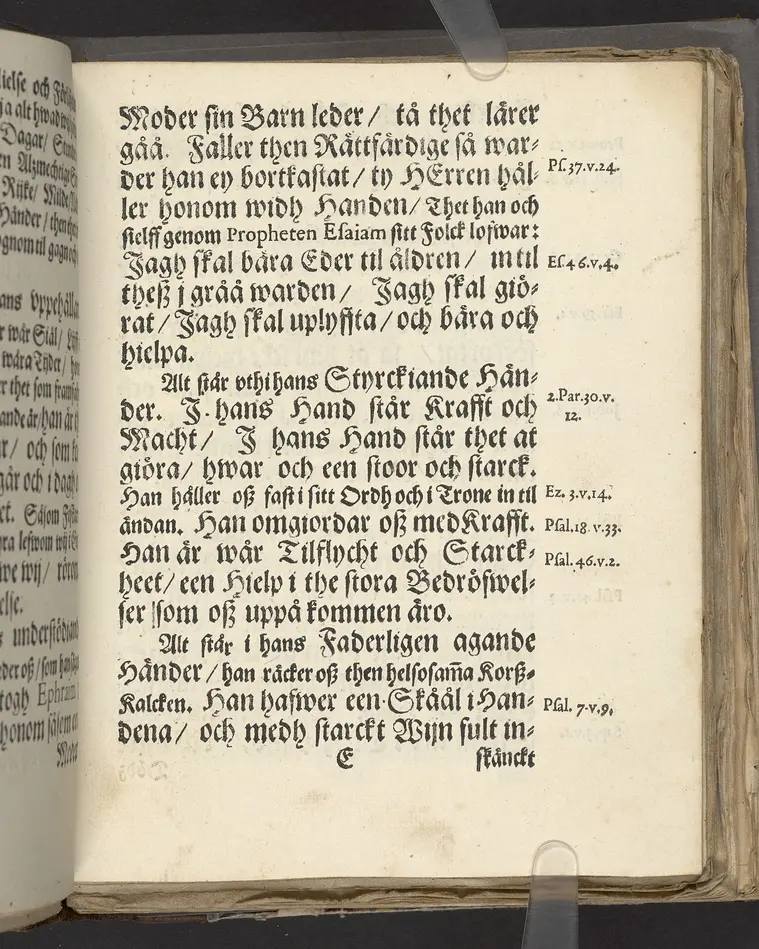 Moder sin Barn leder / tå thet lärer
gåå. Faller then Rättfärdige så war-
der han ey bortkastat / ty HErren hål-
ler honom widh Handen / Thet han och
sielff genom Propheten Esaiam sitt Folck lofwar:
Jagh skal bära Eder til åldren / in til
theß j gråå warden / Jagh skal giö-
rat / Jagh skal uplyffta / och bära och
hielpa.
Alt står vthi hans Styrckiande Hän-
der. J hans Hand står Krafft och
Macht / J hans Hand står thet at
giöra / hwar och een stoor och starck.
Han håller oß fast i sitt Ordh och i Trone in til
ändan. Han omgiordar oß med Krafft.
Han är wår Tilflycht och Starck-
heet / een Hielp i the stora Bedröfwel-
ser som oß uppå kommen äro.
Alt står i hans Faderligen agande
Händer / han räcker oß then helsosam̃a Korß-
Kalcken. Han hafwer een Skåål i Han-
dena / och medh starckt Wijn fult in-
E skänckt
Ps. 37. v. 24.
Es. 46. v. 4.
2. Par. 30. v.
12.
Ez. 3. v. 14.
Psal. 18. v. 33.
Psal. 46. v. 2.
Psal. 7. v. 9.
lielse och
ja alt hwad
Dagar /
en Alzmechtig
Rijke /
Händer /
ognom til gagn
ans vppehälla
r wår Siäl /
wåra Tijder /
er thet som
ande är / han är
ar / och som
går och i dag
et. Såsom
ra lefwom wij i
we wij /
else.
s understödiand
eder oß / som
togh Ephraim
honom
Mode